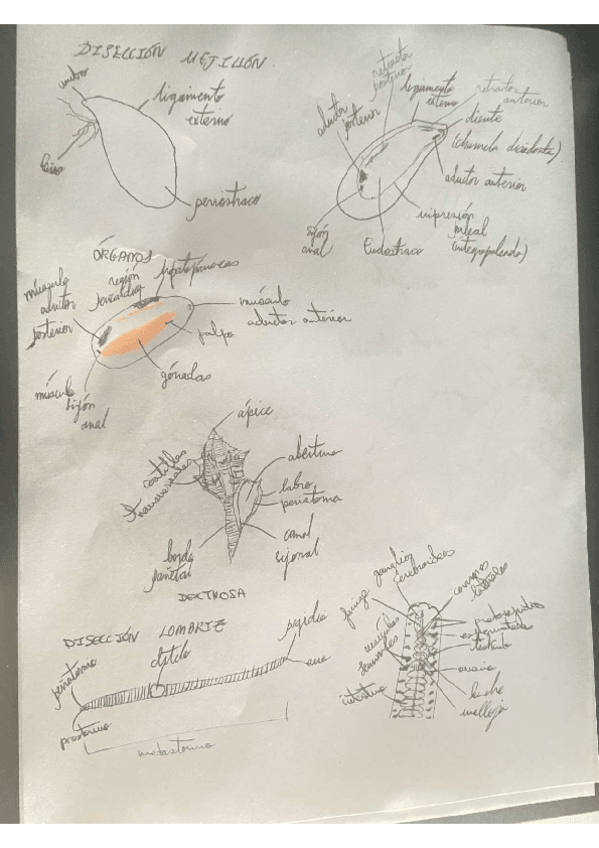 DISECCIÓN MEJILLÓN
umbo
ligamento
externo
biso
periostraco
retractor
posterior
ligamento
externo
retractor
anterior
aductor
posterior
diente
(charnela disodonta)
aductor anterior
impresión
paleal
(integropaleado)
sifón
anal
Endostraco
ÓRGANOS
músculo
aductor
posterior
región
hepatopáncreas
músculo
aductor anterior
palpo
gónadas
músculo
sifón
anal
ápice
costillas
transversales
abertura
labro
peristoma
canal
sifonal
borde
DEXTROSA
DISECCIÓN LOMBRIZ
clitelo
pigidio
ano
prostomio
ganglios
cerebroideos
faringe
corazones
laterales
vesículas
seminales
testículo
ovario
buche
molleja
intestino